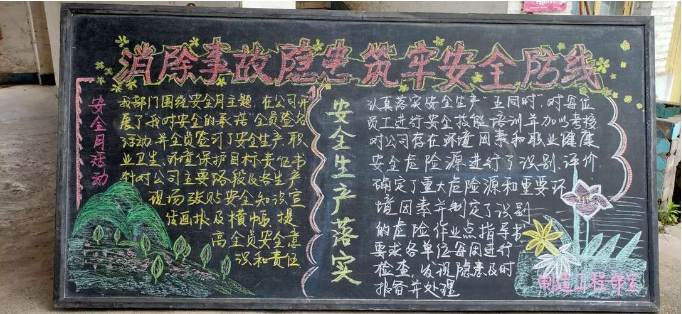 消除事故隐患 筑牢安全防线
安全月活动
我部门围绕安全月主题，在公司开
展了我对安全的承诺"全员签名
活动并全员签订了安全生产、职
业卫生、环境保护目标责任书
针对公司主要路段及各生产
现场张贴安全知识宣
传画报及横幅，提
高全员安全意
识和责任
安全生产落实
认真落实安全生产"五同时"，对每位
员工进行安全技能培训并加以考核
对公司存在环境因素和职业健康
安全危险源进行了识别、评价
确定了重大危险源和重要环
境因素并制定了识别
的危险作业点指导书
要求各单位每周进行
检查，发现隐患及时
报告并处理
制造工程部